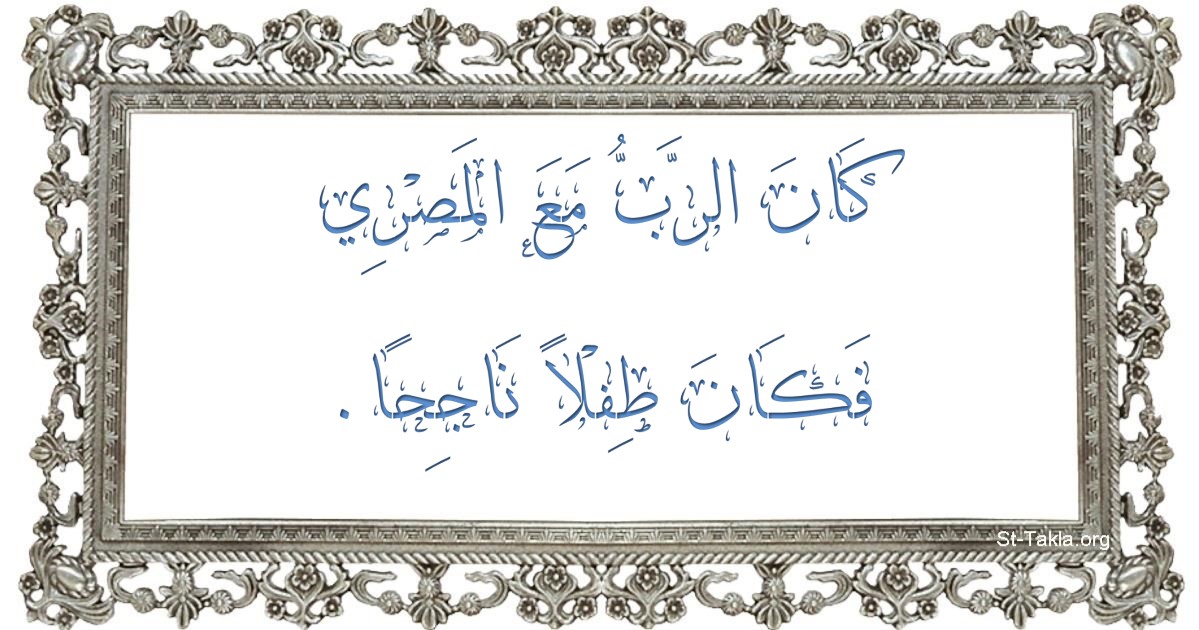 كَانَ الرَّبُّ مَعَ الْمَصْرِي
فَكَانَ طِفْلاً نَاجِحًا .
St-Takla.org